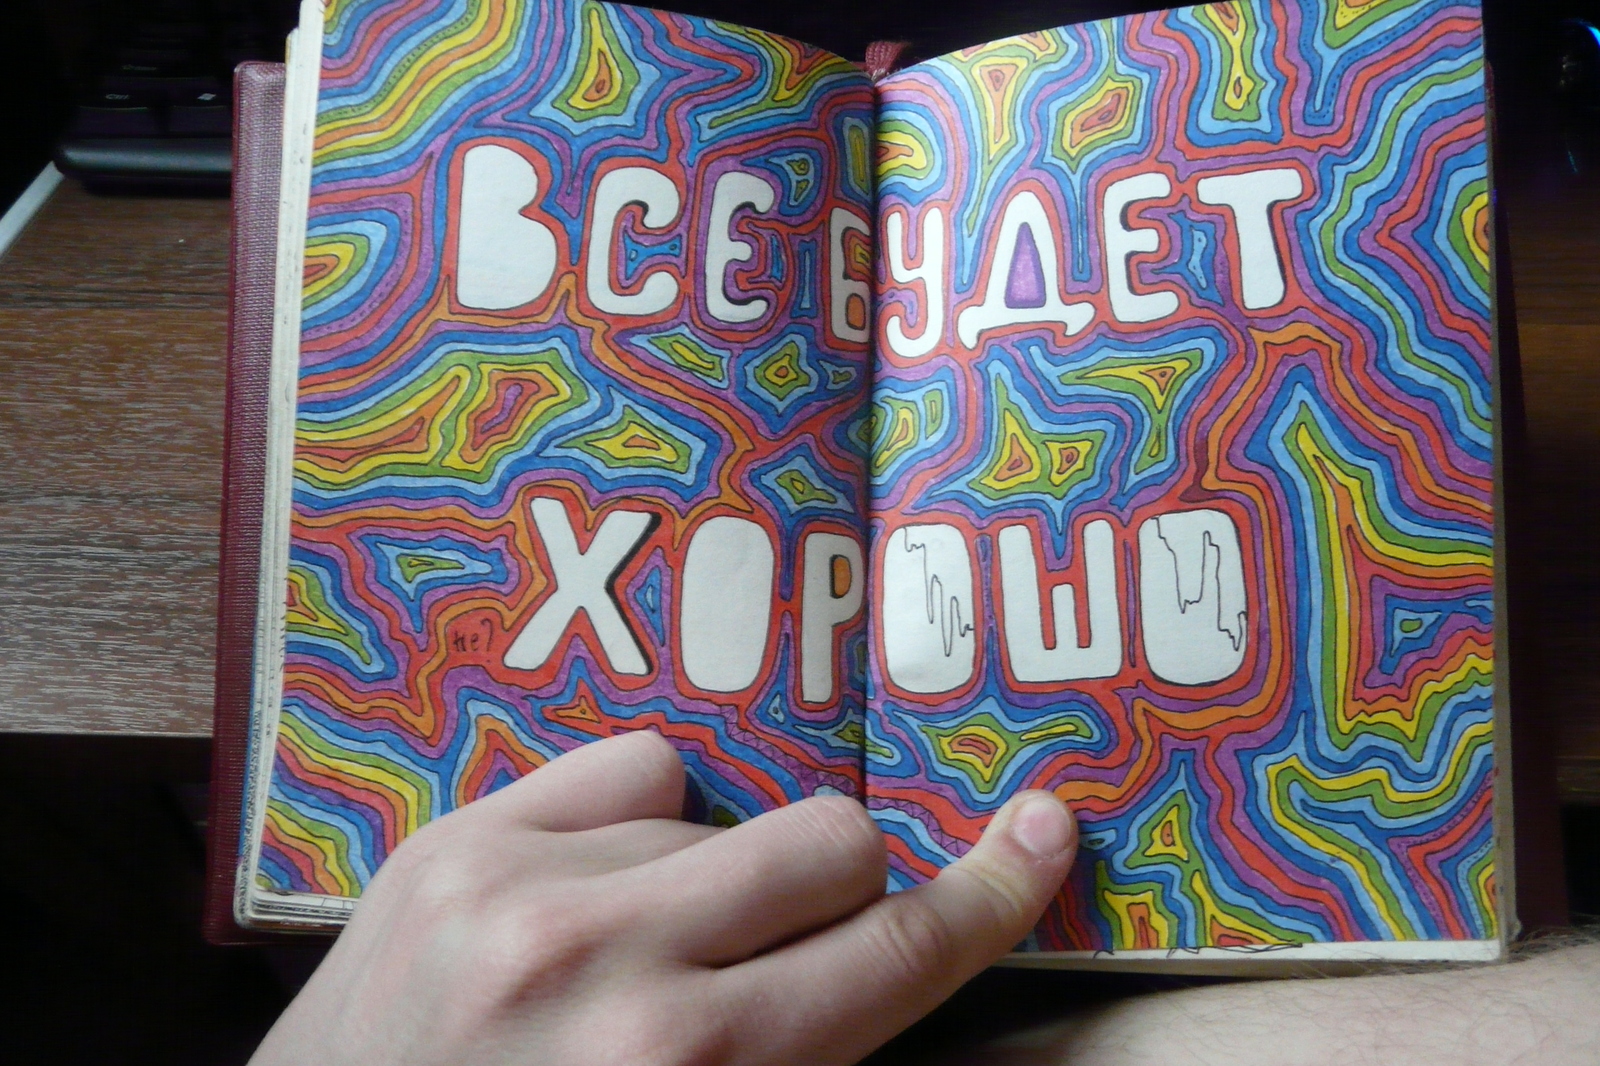 ВСЕ БУДЕТ
ХОРОШО
не?